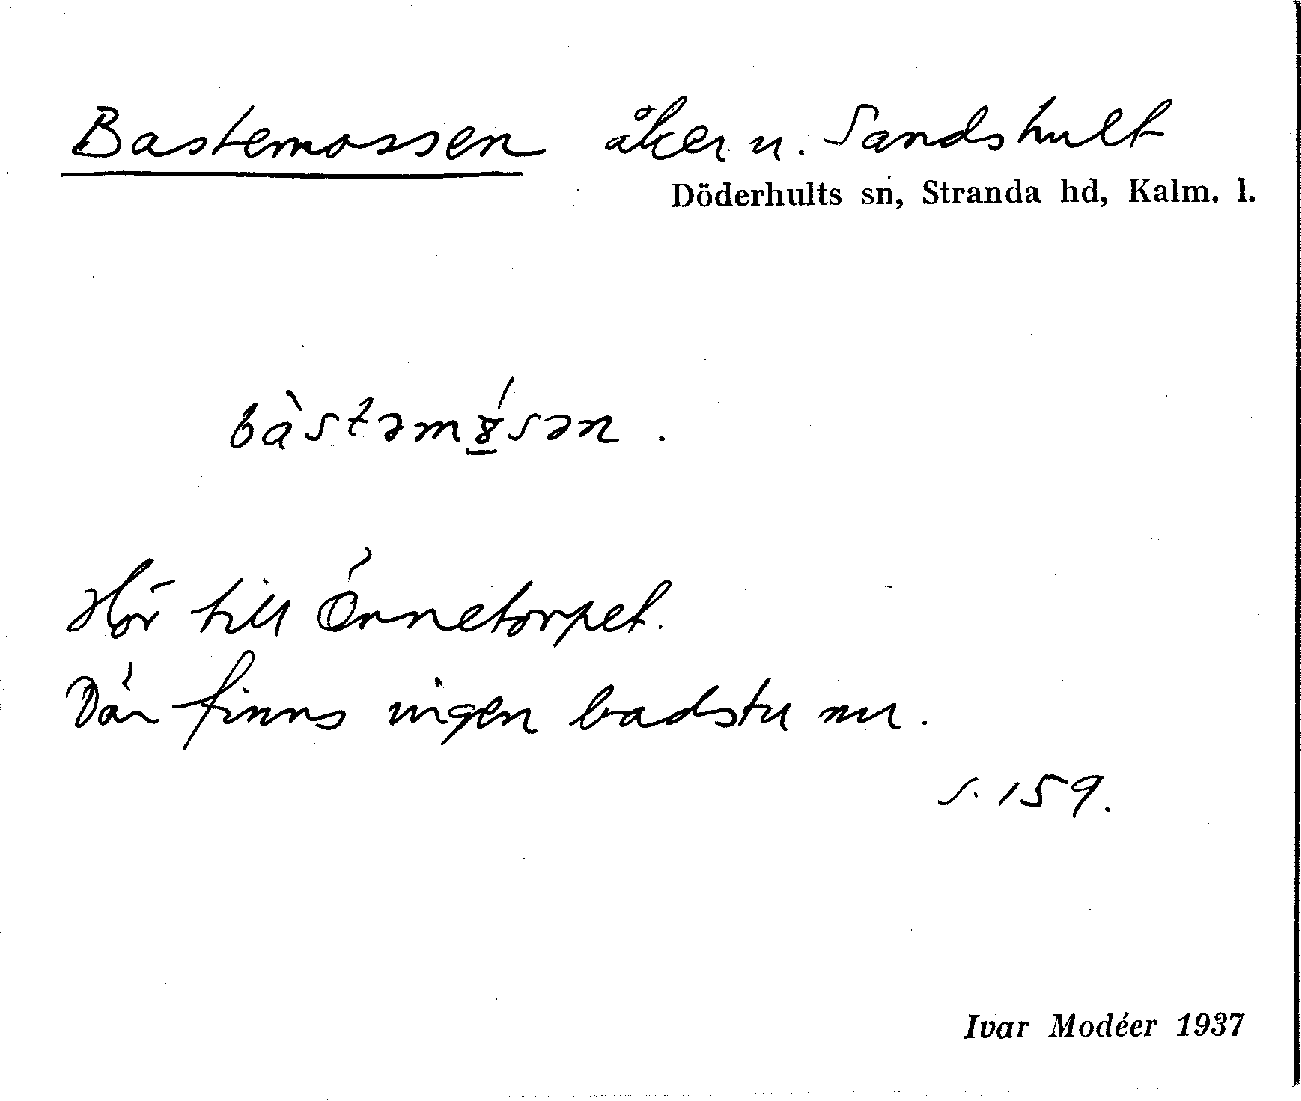 Bastemossen åker u. Sandshult
Döderhults sn, Stranda hd, Kalm. l.
bàstəmȣ́sən.
Hör till Örnnetorpet.
Där finns ingen badstu nu.
s. 159.
Ivar Modéer 1937